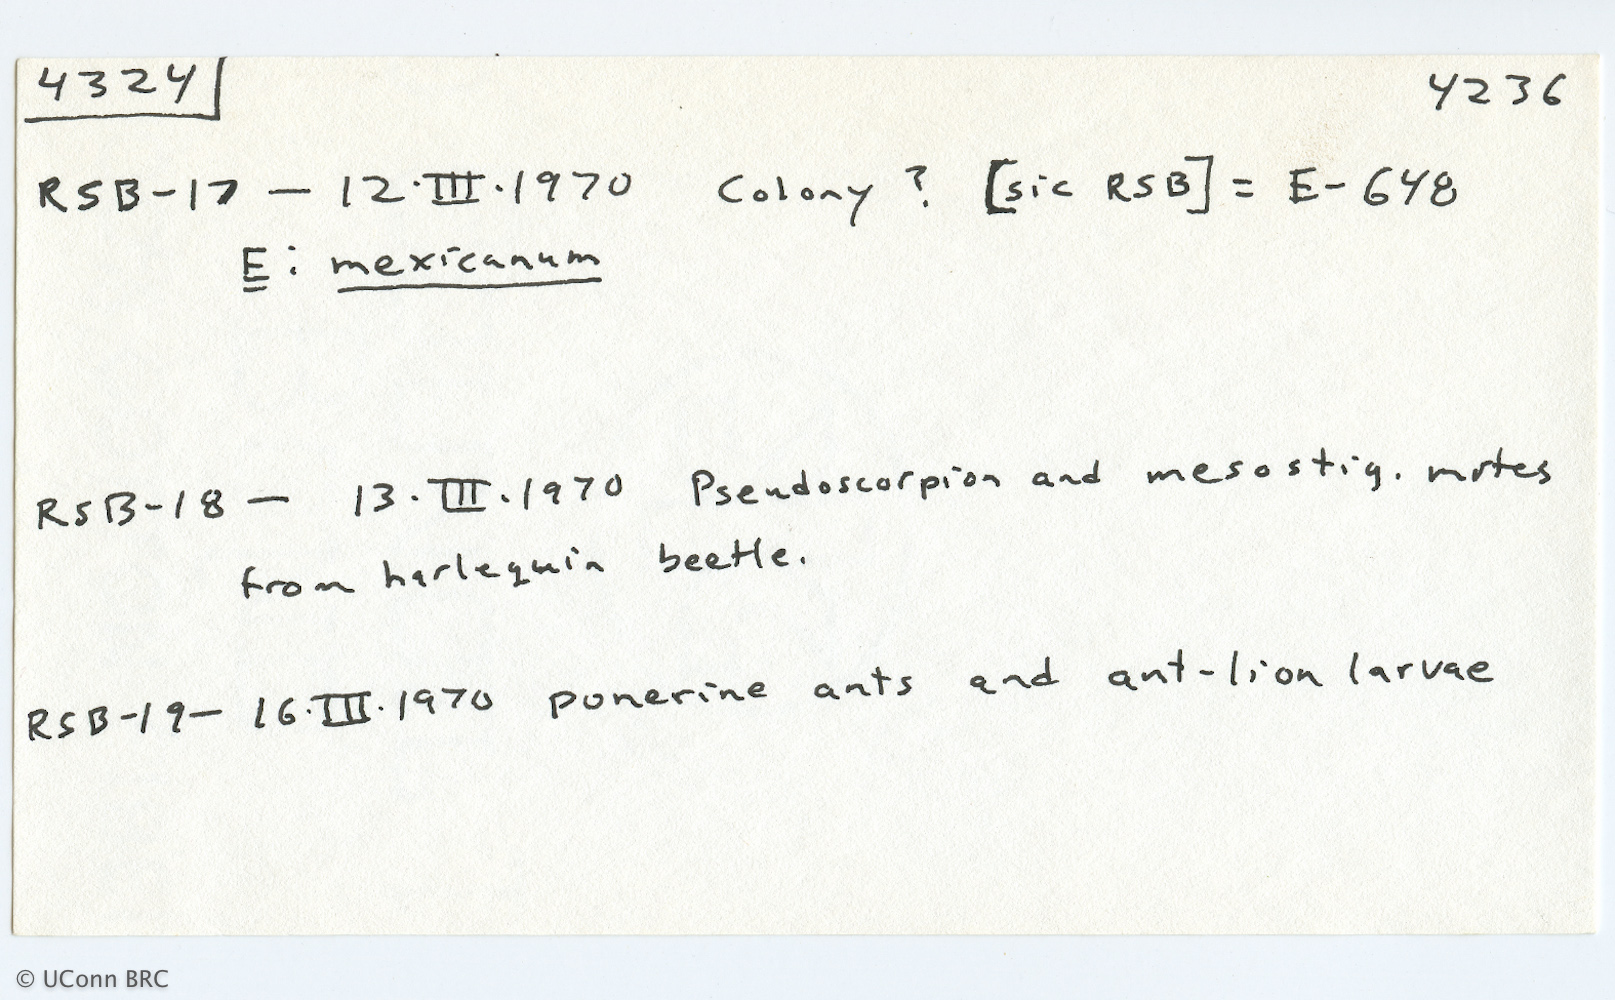 4324 4236
RSB-17 — 12·III·1970 Colony ? [sic RSB] = E-648
E: mexicanum
RSB-18 — 13·III·1970 Pseudoscorpion and mesostig. mites
from harlequin beetle.
RSB-19— 16·III·1970 ponerine ants and ant-lion larvae
© UConn BRC